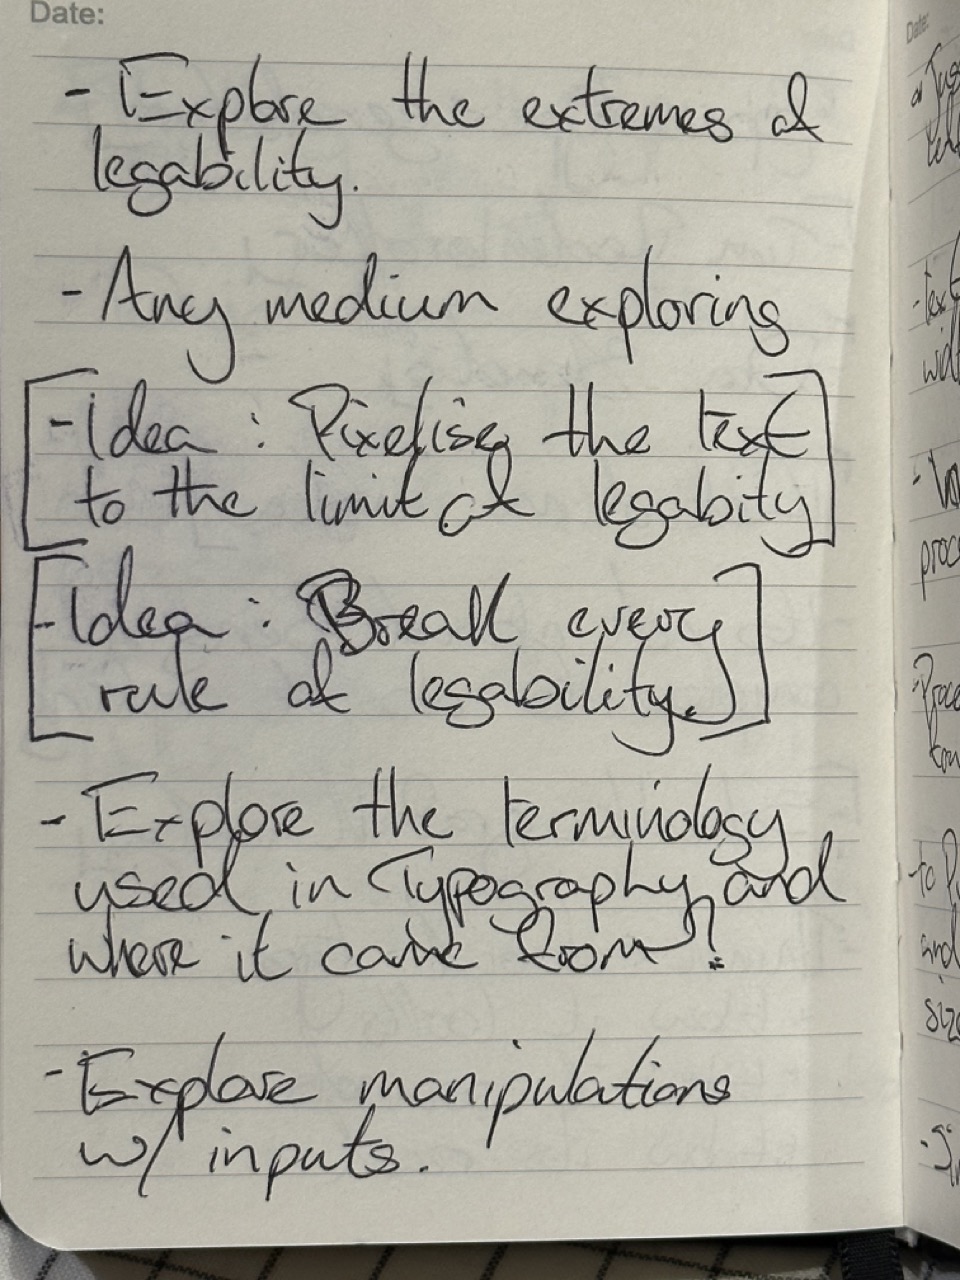 Date:
- Explore the extremes of
legability.
- Any medium exploring
[-Idea : Pixelise the text
to the limit of legabity]
[-Idea : Break every
rule of legability.]
- Explore the terminology
used in Typography, and
where it came from?
- Explore manipulations
w/ inputs.
Date:
- text
proc
- to
and